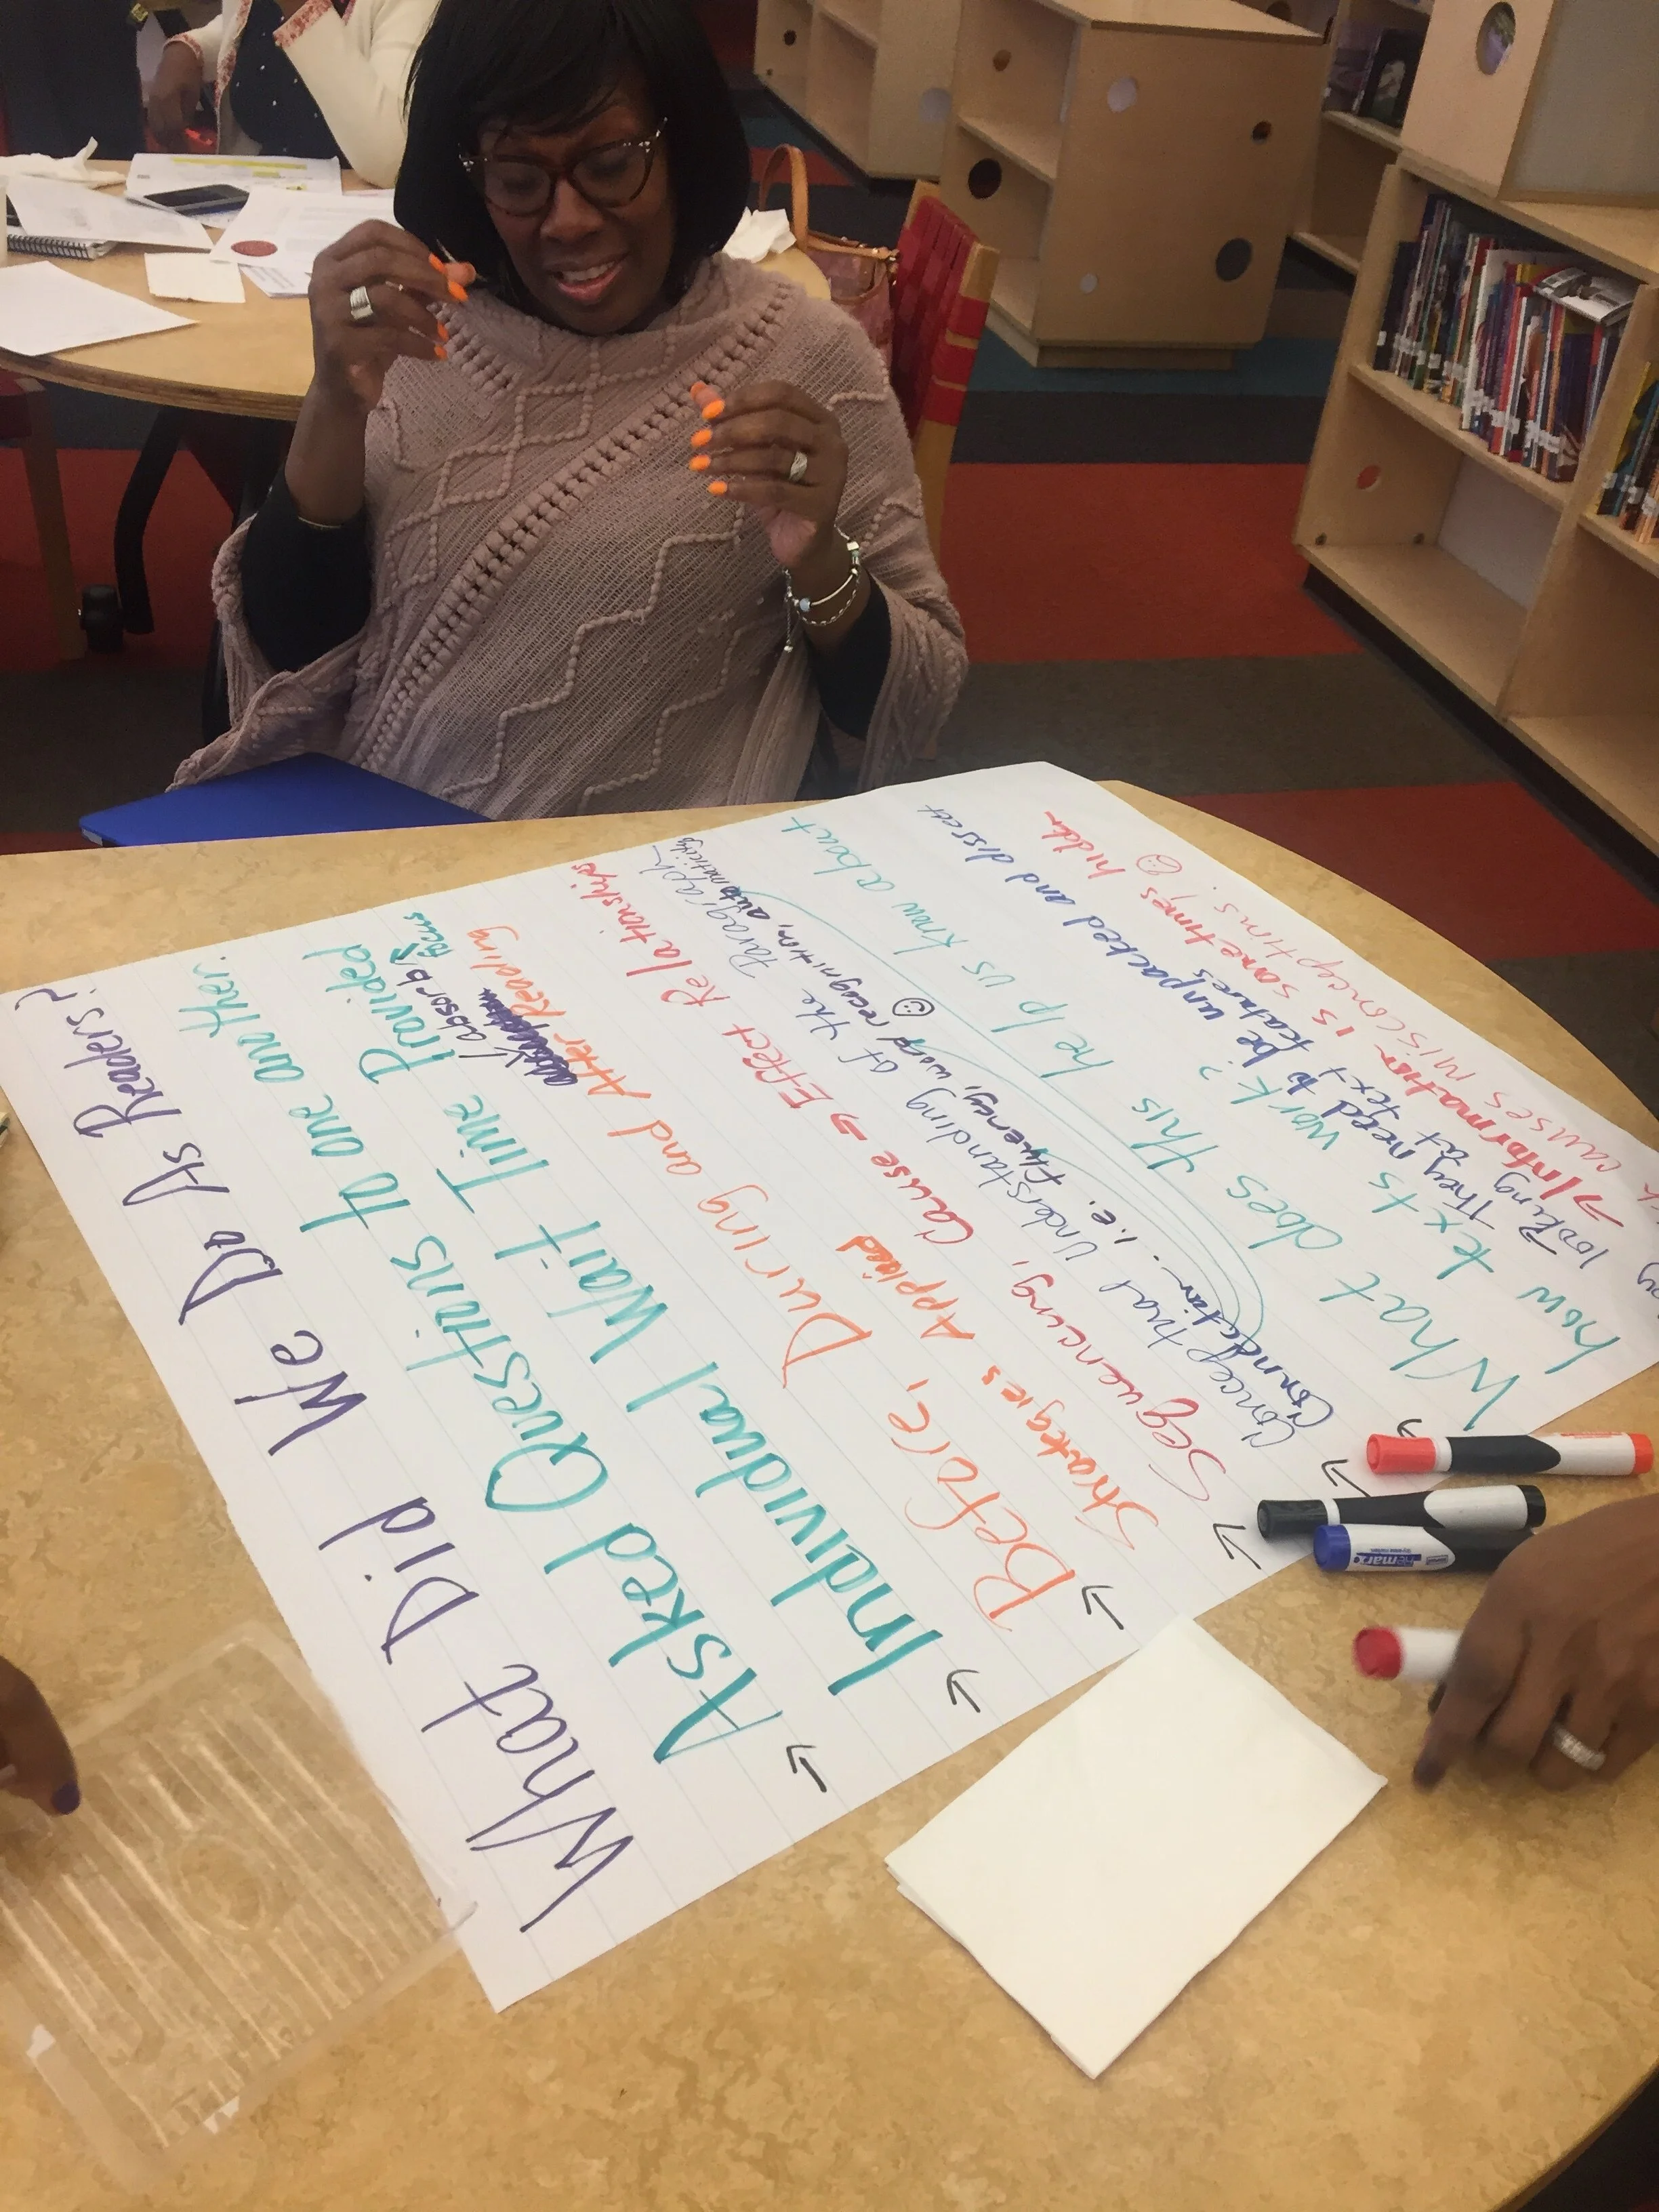 What Did We Do As Readers?
→ Asked Questions to one another.
→ Individual Wait Time Provided
↳ absorb &
focus
→ Before, During and After Reading
Strategies Applied
→ Sequencing, Cause → Effect Relationships
→ Conceptual Understanding of the Paragraph
Foundation... i.e. fluency, word recognition, automaticity
What does this help us know about
how texts work?
They need to be unpacked and dissected
looking at text features
→ Information is sometimes hidden
causes misconceptions!